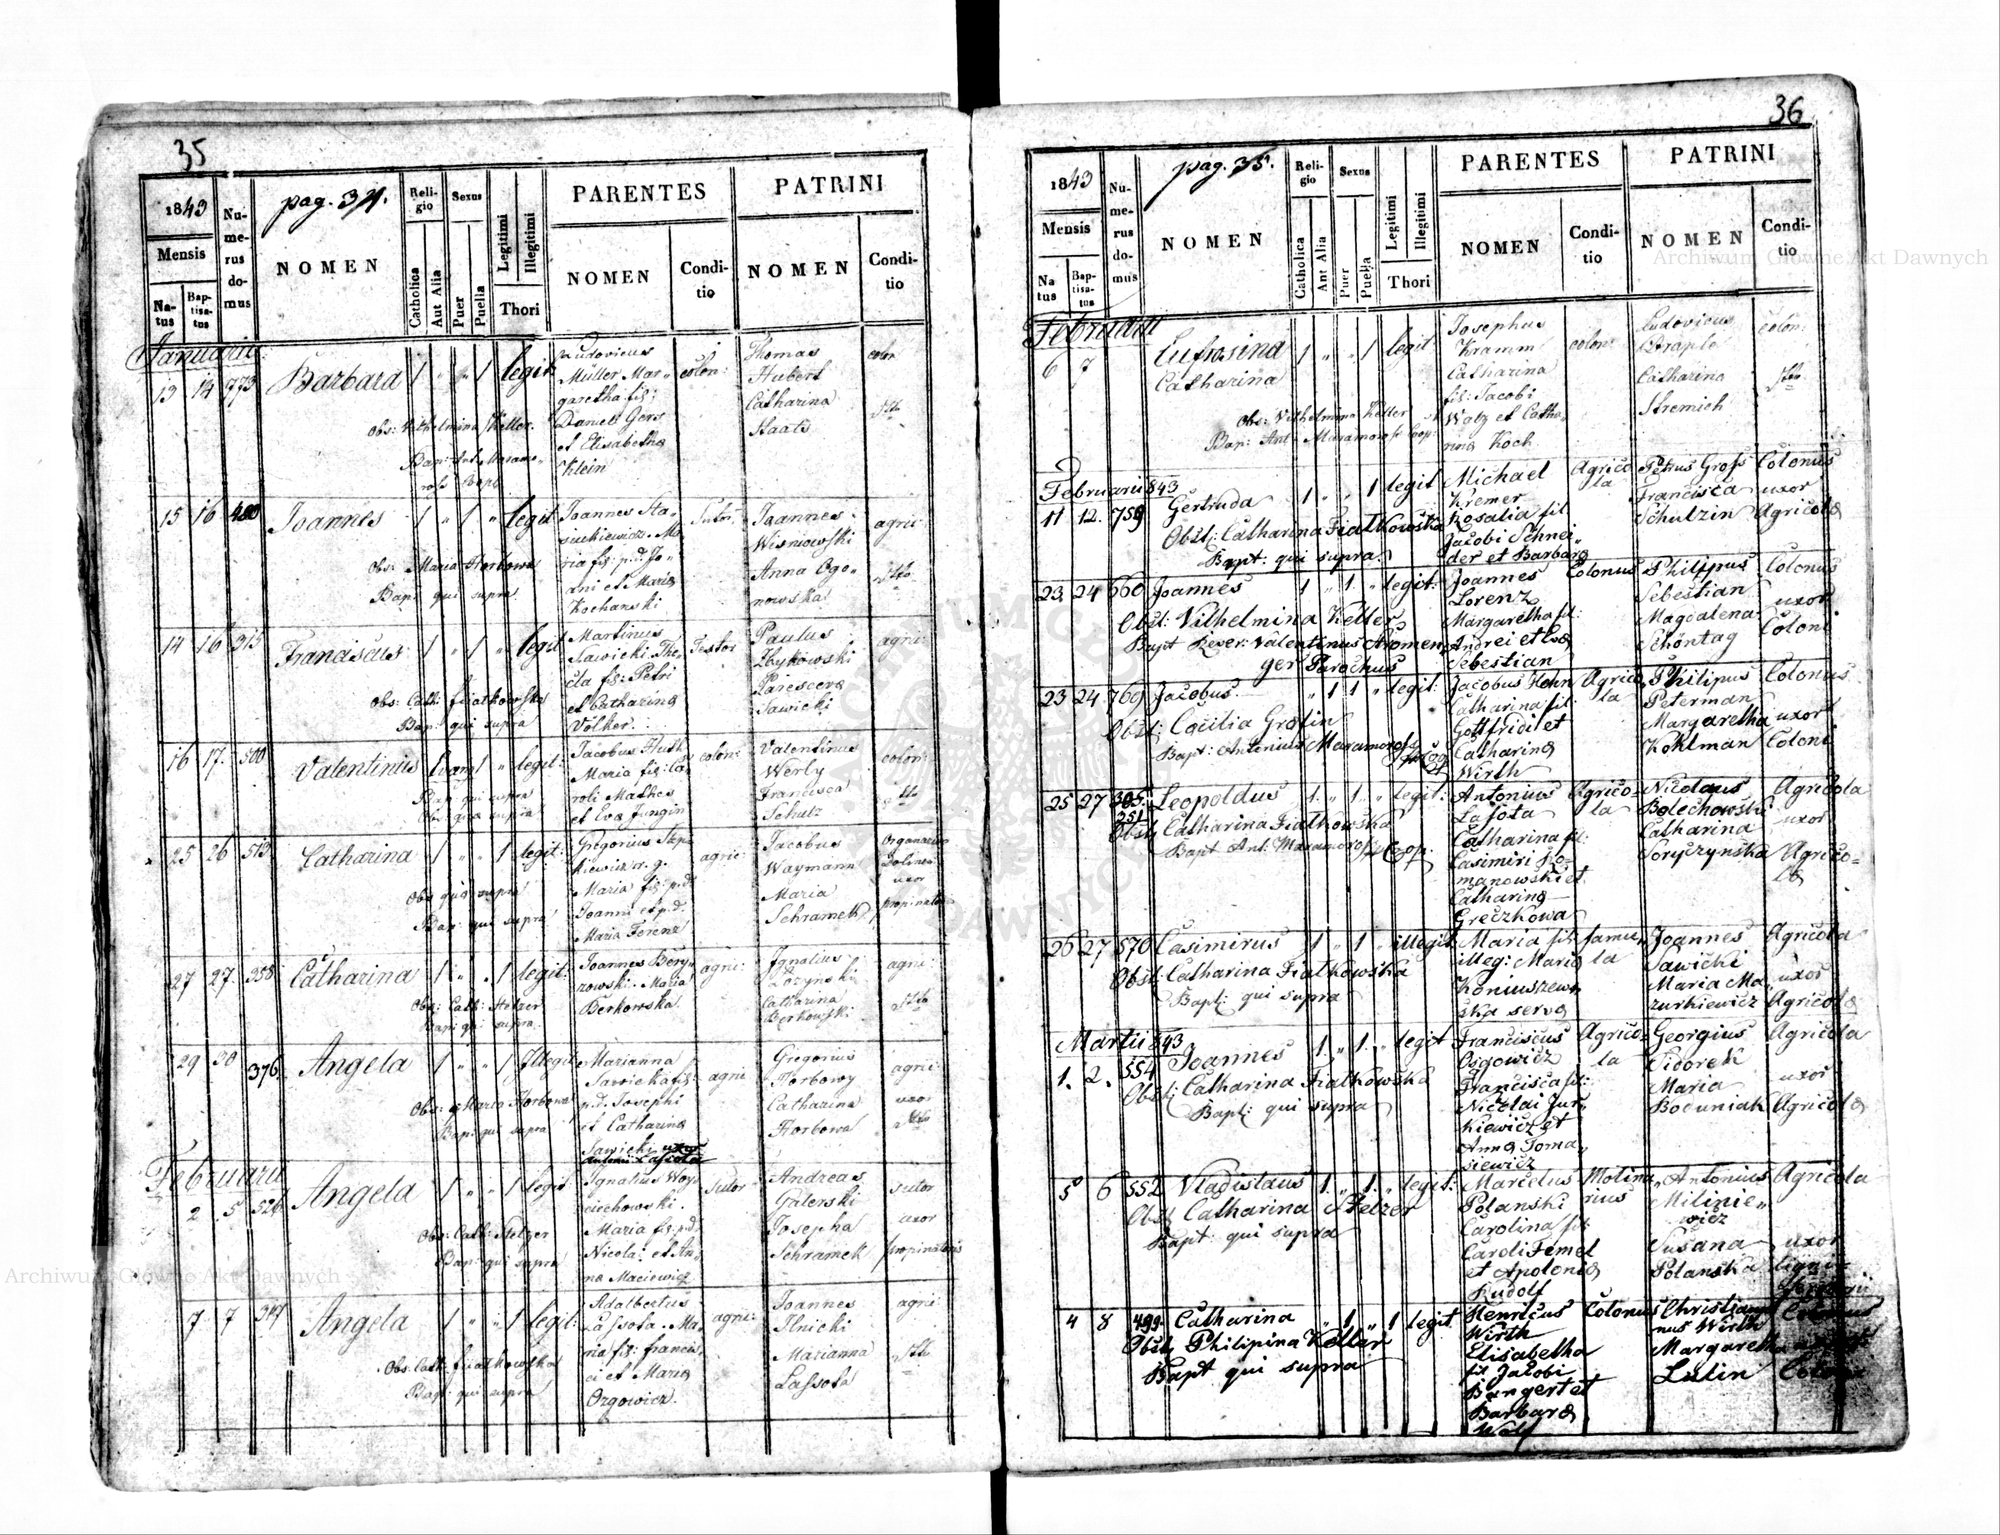 35
1843
Mensis
Natus
Baptisatus
Numerus domus
pag. 34.
NOMEN
Religio
Catholica
Aut Alia
Sexus
Puer
Puella
Legitimi
Illegitimi
Thori
PARENTES
NOMEN
Conditio
PATRINI
NOMEN
Conditio
Januarii
13 14 773 Barbara 1 " " 1 legit:
Ludovicus
Müller Mar-
garetha fil:
Daniel Gers
et Elisabetha
Klein
colon:
Thomas
Hubert
Catharina
Staats
colon
Obs: Vilhelmina Keller.
Bap: Ant. Maramo-
15 16 480 Joannes 1 " 1 " legit
Joannes Sta-
siukiewicz. Ma
ria fil: p.d. Jo-
ani et Maria
Kochanski
Sutor
Joannes
Wisniowski
Anna Ogo-
nowska
agri:
Obs: Maria Horbowa
Bap: qui supra
14 16 313 Franciscus 1 " 1 " legit
Martinus
Sawicki. The
cla fil: Petri
et Catharina
Völker.
Textor
Paulus
Zbykowski
Sawicki
agri:
Obs: Cath: Fiatkowska
Bap: qui supra
16 17. 500 Valentinus Evang 1 " legit:
Jacobus Huth
Maria fil: Ca
roli Mathes
et Eva Jungin
colon:
Valentinus
Werly
Francisca
Schulz
colon:
Bap: qui supra
Obs: qua supra
25 26 513 Catharina 1 " " 1 legit:
Gregorius Step-
kiewicz r. g.
Maria fil: p.d.
Joanni et p.d.
Maria Ferenz
agric:
Jacobus
Waymann
Maria
Schramek
uxor
propinatoris
Obs qua supra
Bap: qui supra
27 27. 358 Catharina 1 " " 1 legit:
Joannes Bory-
rowski. Maria
Berkowska
agri:
Ignatius
Lozynski
Catharina
Berkowski
agri:
Obs: Cath: Stelzer
Bap: qui supra
29 30 376 Angela 1 " " 1 Illegit
Marianna
Sawicka fil:
p.d. Josephi
et Catharina
Sawicki uxor
Antonii Lassota
agric
Gregorius
Horbowy
Catharina
Horbowa
agri:
uxor
Obs: Maria Horbowa
Bap: qui supra
Februarii
2 5 526 Angela 1 " " 1 legit
Ignatius Woy-
ciechowski.
Maria fil: p.d.
Nicolai et An-
na Maciewicz
sutor
Andreas
Galenski
Josepha
Schramek
sutor
uxor
propinatoris
Obs: Cath: Stelzer
Bap: qui supra
7 7 347 Angela 1 " " 1 legit:
Adalbertus
Lassota. Ma-
ria fil: Francis-
ci et Maria
Orgowicz.
agri:
Joannes
Ilnicki
Marianna
Lassota
agri:
Obs: Cath: Fiatkowska
Bap: qui supra
36
1843
Mensis
Natus
Baptisatus
Numerus domus
pag. 35.
NOMEN
Religio
Catholica
Aut Alia
Sexus
Puer
Puella
Legitimi
Illegitimi
Thori
PARENTES
NOMEN
Conditio
PATRINI
NOMEN
Conditio
Februarii
6 7 Eufrosina 1 " " 1 legit
Catharina
Josephus
Kramm
Catharina
fil: Jacobi
Walz et Catha-
rina Koch
colon:
Ludovicus
Catharina
Stremich
colon:
Obs: Vilhelmina Keller
Bap: Ant: Maramoross Coop:
Februarii 843
11 12. 759 Gertruda 1 " " 1 legit
Michael
Kremer
Rosalia fil
Jacobi Schnei-
der et Barbara
Agrico
la
Petrus Gross
Francisca
Schulzin
Colonus
uxor
Agricola
Obst: Catharina Fiatkowska
Bapt: qui supra.
23 24 660 Joannes 1 " 1. " legit.
Joannes
Lorenz
Margaretha fil:
Andrei et Eva
Sebestian
Colonus
Philippus
Sebestian
Magdalena
Schöntag
Colonus
uxor
Coloni
Obst: Vilhelmina Keller
Bapt Rever: Valentinus Stromen-
ger Parochus
23 24 769 Jacobus " 1 1 " legit:
Jacobus Hohn
Catharina fil:
Gottfridi et
Catharina
Wirth
Agrico
la
Philipus
Peterman
Margaretha
Kohlman
Colonus
uxor
Coloni
Obst: Cecilia Grosin
Bapt: Antonius Maramoross
25 27 305. Leopoldus 1. " 1. " legit:
351
Antonius
Lasota
Catharina fil:
Casimiri Ro-
manowski et
Catharina
Greczkowa
Agrico
la
Nicolaus
Bolechowski
Catharina
Soryczynska
Agricola
uxor
Agrico-
la
Obst: Catharina Fiatkowska
Bapt Ant: Maramoross Coop.
26 27 570 Casimirus 1. " 1 " illegit
Maria fil:
illeg: Maria
Koniuszew-
ska serva
famu-
la
Joannes
Sawicki
Maria Ma-
zurkiewicz
Agricola
uxor
Agricola
Obst: Catharina Fiatkowska
Bapt: qui supra
Martii 843
1. 2. 554 Joannes 1. " 1. " legit
Franciscus
Osgowicz
Francisca fil:
Nicolai Jur-
kiewicz et
Anna Toma-
siewicz
Agrico-
la
Georgius
Sidorek
Maria
Boduniak
Agricola
uxor
Agricola
Obst: Catharina Fiatkowska
Bapt: qui supra
5 6 552 Vladislaus 1. " 1. " legit:
Marcelus
Polanski
Carolina fil
Caroli Femel
et Apolonia
Rudolf
Molina-
rius
Antonius
Milinie-
wicz
Susana
Polanska
Agricola
uxor
Obst: Catharina Stelzer
Bapt: qui supra
4 8 499 Catharina " 1. " 1 legit
Henricus
Wirth
Elisabetha
fil: Jacobi
Bangert et
Barbara
Wolf
Colonus
Christjanus
nus Wirth
Margaretha
Lulin
Colonus
Obst: Philipina Keller
Bapt qui supra
Archiwum Główne Akt Dawnych
Archiwum Główne Akt Dawnych